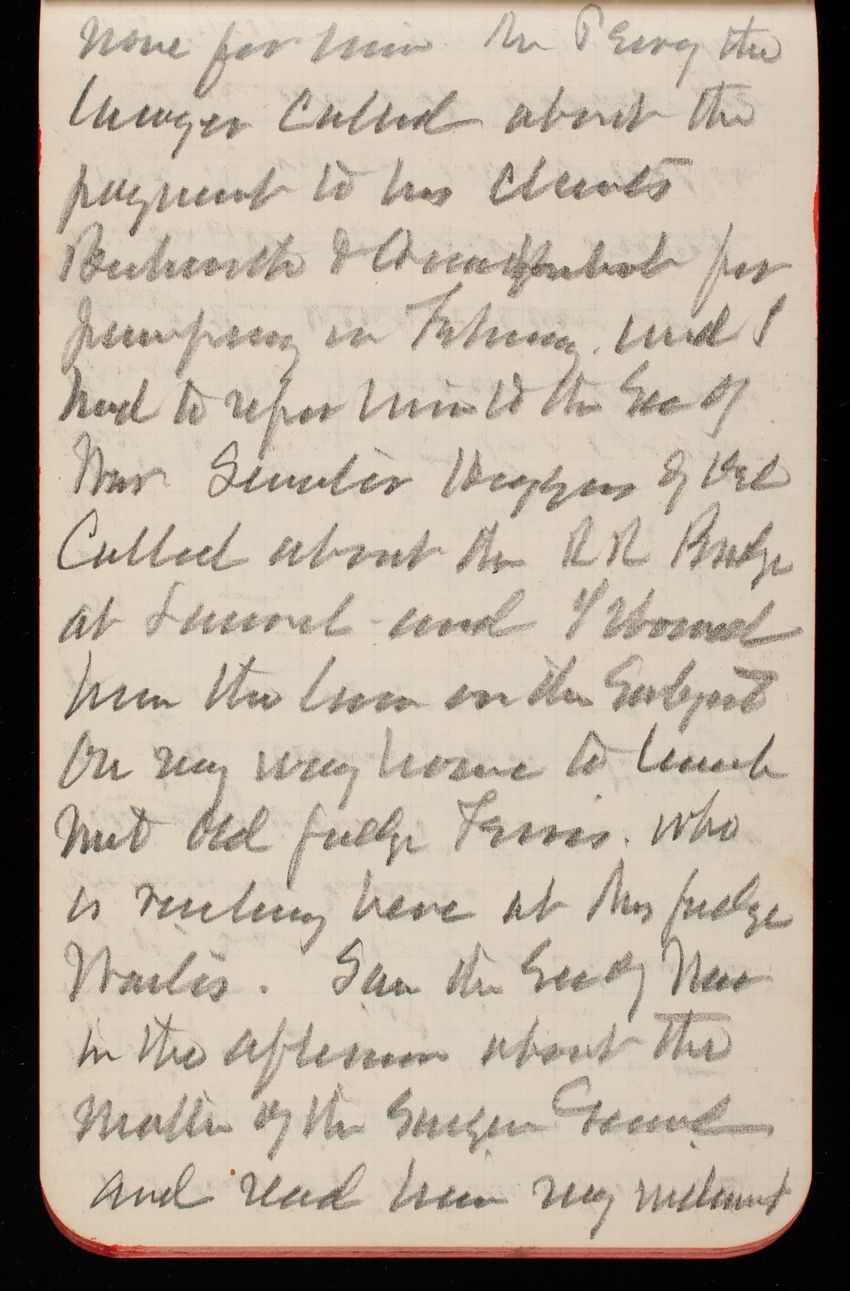 none for him Mr Perry the
lawyer called about the
payment to his clients
Butterworth & for
pumping in February. and I
had to refer him to the Sec of
War Senator Higgins of Del
Called about the RR Bridge
at Laurel - and I showed
him the law on the subject
On my way home to lunch
met Old Judge Ferris. who
is visiting here at his Judge
. Saw the Sec of War
in the afternoon about the
matter of the Surgeon General
and read him my